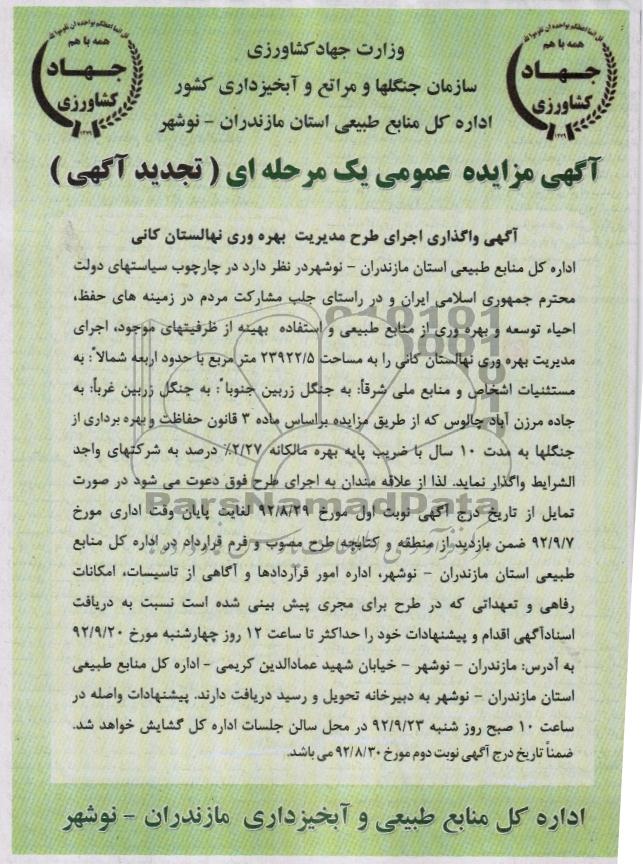 وزارت جهاد کشاورزی
سازمان جنگلها و مراتع و آبخیزداری کشور
اداره کل منابع طبیعی استان مازندران - نوشهر
همه با هم
جهاد
کشاورزی
۱۳۷۹
همه با هم
جهاد
کشاورزی
۱۳۷۹
آگهی مزایده عمومی یک مرحله ای ( تجدید آگهی )
آگهی واگذاری اجرای طرح مدیریت بهره وری نهالستان کانی
اداره کل منابع طبیعی استان مازندران - نوشهر در نظر دارد در چارچوب سیاستهای دولت
محترم جمهوری اسلامی ایران و در راستای جلب مشارکت مردم در زمینه های حفظ،
احیاء توسعه و بهره وری از منابع طبیعی و استفاده بهینه از ظرفیتهای موجود، اجرای
مدیریت بهره وری نهالستان کانی را به مساحت ۲۳۹۲۲/۵ متر مربع با حدود اربعه شمالاً: به
مستثنیات اشخاص و منابع ملی شرقاً: به جنگل زربین جنوباً: به جنگل زربین غرباً: به
جاده مرزن آباد چالوس که از طریق مزایده براساس ماده ۳ قانون حفاظت و بهره برداری از
جنگلها به مدت ۱۰ سال با ضریب پایه بهره مالکانه ۲/۲۷٪ درصد به شرکتهای واجد
الشرایط واگذار نماید. لذا از علاقه مندان به اجرای طرح فوق دعوت می شود در صورت
تمایل از تاریخ درج آگهی نوبت اول مورخ ۹۲/۸/۲۹ لغایت پایان وقت اداری مورخ
۹۲/۹/۷ ضمن بازدید از منطقه و کتابچه طرح مصوب و فرم قرارداد در اداره کل منابع
طبیعی استان مازندران - نوشهر، اداره امور قراردادها و آگاهی از تاسیسات، امکانات
رفاهی و تعهداتی که در طرح برای مجری پیش بینی شده است نسبت به دریافت
اسنادآگهی اقدام و پیشنهادات خود را حداکثر تا ساعت ۱۲ روز چهارشنبه مورخ ۹۲/۹/۲۰
به آدرس: مازندران - نوشهر - خیابان شهید عمادالدین کریمی - اداره کل منابع طبیعی
استان مازندران - نوشهر به دبیرخانه تحویل و رسید دریافت دارند. پیشنهادات واصله در
ساعت ۱۰ صبح روز شنبه ۹۲/۹/۲۳ در محل سالن جلسات اداره کل گشایش خواهد شد.
ضمناً تاریخ درج آگهی نوبت دوم مورخ ۹۲/۸/۳۰ می باشد.
BarsNamadData
اداره کل منابع طبیعی و آبخیزداری مازندران - نوشهر